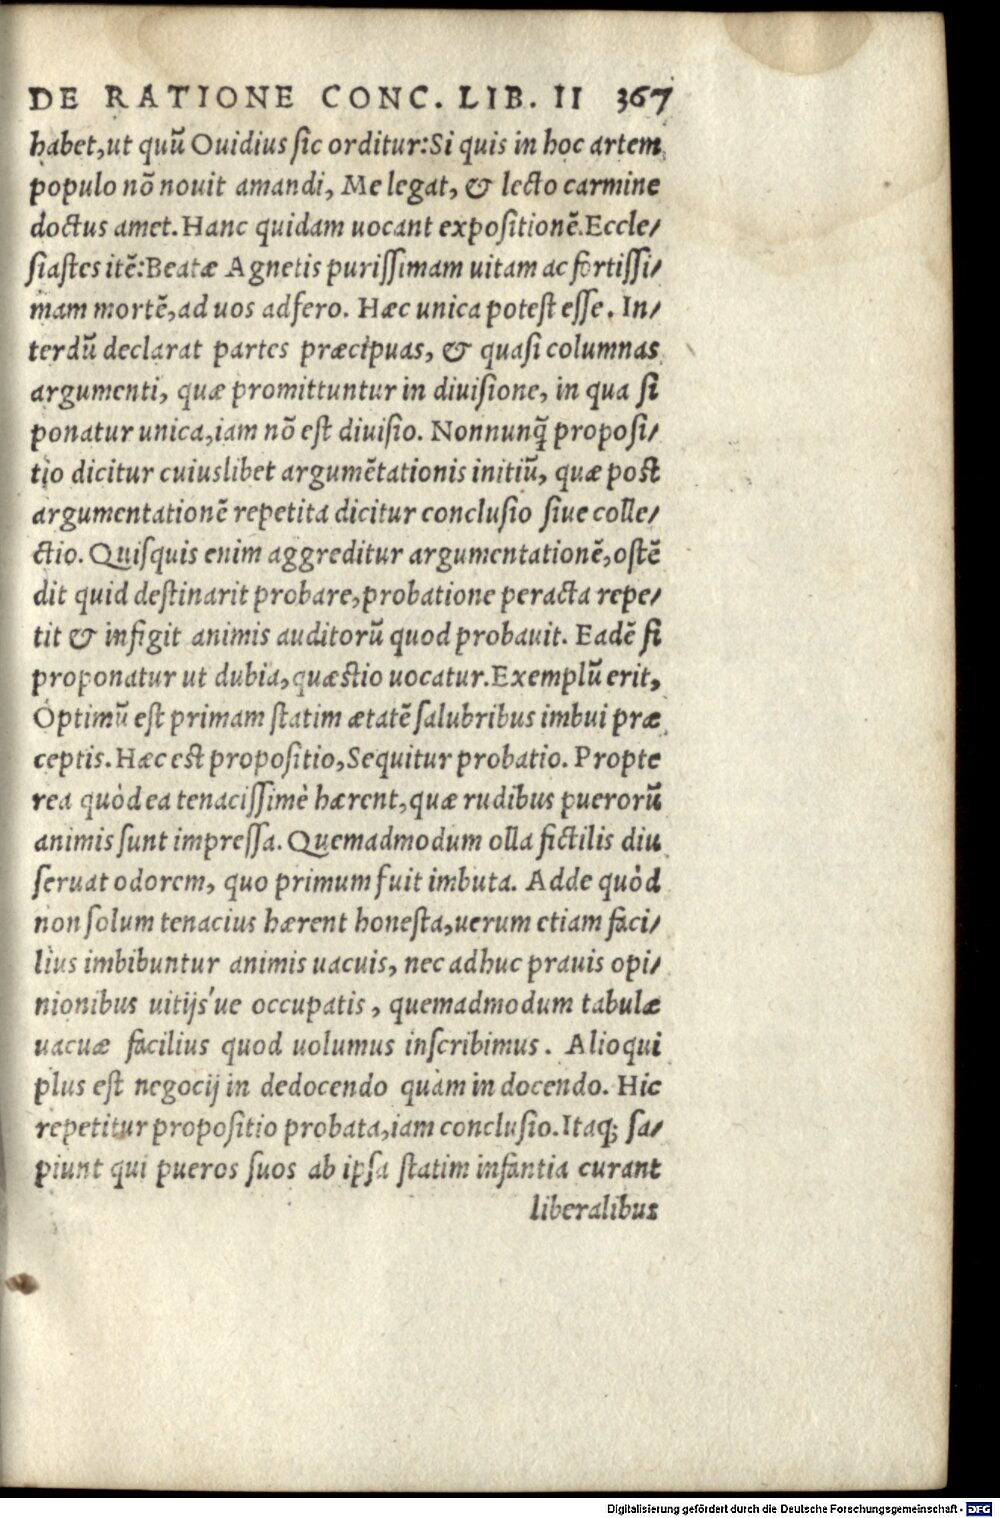 DE RATIONE CONC. LIB. II 367
habet,ut quū Ouidius ſic orditur:Si quis in hoc artem
populo nō nouit amandi, Me legat, & lecto carmine
doctus amet. Hanc quidam uocant expoſitionē.Eccle/
ſiaſtes itē:Beatæ Agnetis puriſſimam uitam ac fortiſſi/
mam mortē,ad uos adfero. Hæc unica poteſt eſſe. In/
terdū declarat partes præcipuas, & quaſi columnas
argumenti, quæ promittuntur in diuiſione, in qua ſi
ponatur unica,iam nō eſt diuiſio. Nonnunq̃ propoſi/
tio dicitur cuiuslibet argumētationis initiū, quæ poſt
argumentationē repetita dicitur concluſio ſiue colle/
ctio. Quiſquis enim aggreditur argumentationē,oſtē
dit quid deſtinarit probare,probatione peracta repe/
tit & infigit animis auditorū quod probauit. Eadē ſi
proponatur ut dubia,quæſtio uocatur.Exemplū erit,
Optimū eſt primam ſtatim ætatē ſalubribus imbui præ
ceptis.Hæc eſt propoſitio,Sequitur probatio. Propte
rea quòd ea tenaciſſimè hærent,quæ rudibus puerorū
animis ſunt impreſſa. Quemadmodum olla fictilis diu
ſeruat odorem, quo primum fuit imbuta. Adde quòd
non ſolum tenacius hærent honeſta,uerum etiam faci/
lius imbibuntur animis uacuis, nec adhuc prauis opi/
nionibus uitijs'ue occupatis, quemadmodum tabulæ
uacuæ facilius quod uolumus inſcribimus. Alioqui
plus eſt negocij in dedocendo quàm in docendo. Hic
repetitur propoſitio probata,iam concluſio.Itaq; ſa/
piunt qui pueros ſuos ab ipſa ſtatim infantia curant
liberalibus
Digitalisierung gefördert durch die Deutsche Forschungsgemeinschaft - DFG